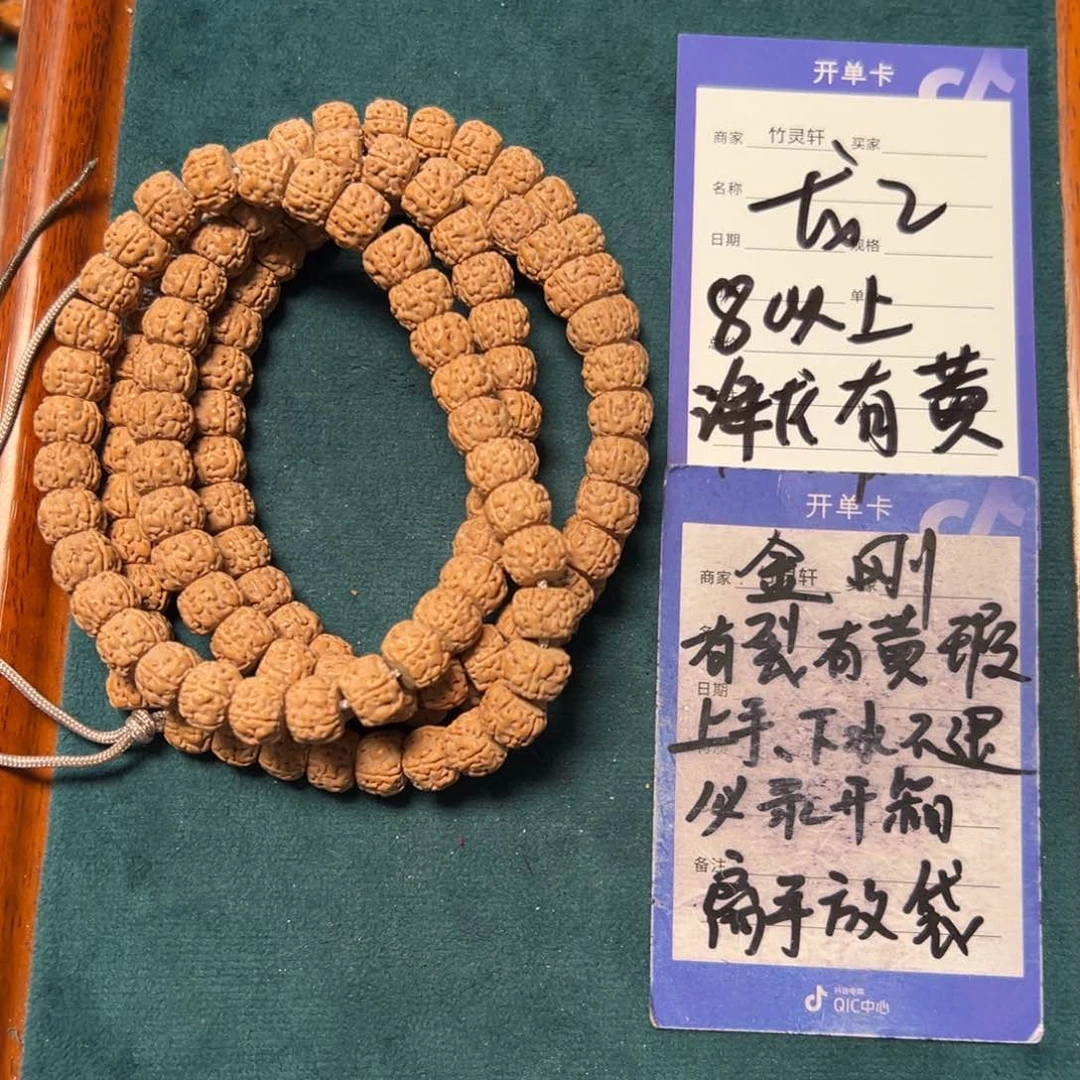 开单卡
商家 竹灵轩 买家
名称
日期 规格
单
8以上
降龙有黄
开单卡
商家 金刚 轩
有裂有黄瑕
日期
上手、下水不退
必录开箱
备注
离手放袋
抖音电商
QIC中心